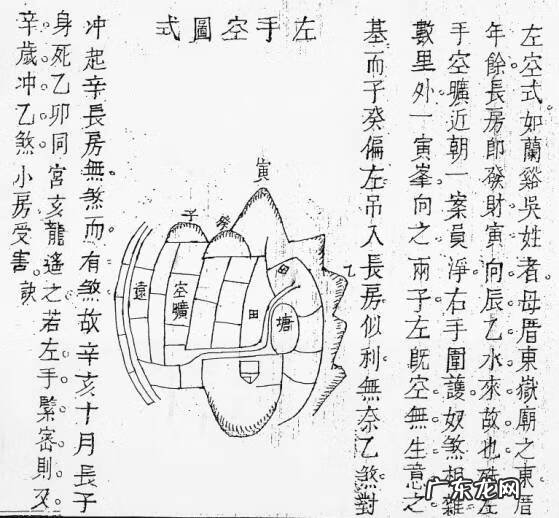 左空式如蘭谿吳姓者母厝東嶽廟之東厝
年餘長房即發財寅向辰乙水來故也
左手空曠近朝一案員淨右手圍護奴煞相雜
數里外一寅峯向之兩子左既空無生意之
基而子癸偏左吊入長房似利無奈乙煞對
左手空圖式
寅
癸
子
乙
田
塘
田
空曠
遠
冲起辛長房無煞而有煞故辛亥十月長子
身死乙卯同宮亥龍遙之若左手緊密則又
辛歲冲乙煞小房受害訣
广东龙网